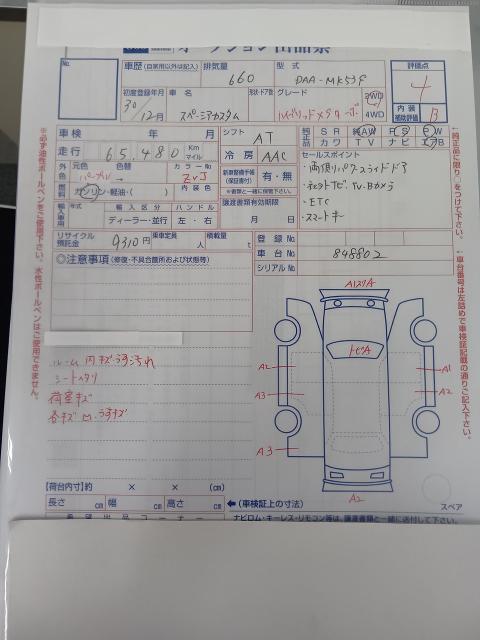 オークション出品票
No.
車歴 (自家用以外は記入)
排気量
660
型式
DAA-MK53S
評価点
4
内装補助評価
B
初度登録年月
30/12月
車名
スペーシアカスタム
形状・ドア数
グレード
2WD
4WD
車検 年 月
シフト
AT
純正品
SR AAW PS PW
カワ TV ナビ エアB
走行 65,480 Km マイル
冷房
AAC
セールスポイント
・両側パワースライドドア
・ETC
・スマートキー
外色
元色
パープル
色替
→
カラーNo
ZVJ
新車整備手帳(保証書付)
有・無
※書類と一緒に保管下さい。
燃料
ガソリン・軽油・( )
内装色
輸入車用
年式
輸入区分
ディーラー・並行
ハンドル
左・右
譲渡書類有効期限
月 日
リサイクル預託金
9310円
乗車定員
人
積載量
t
登録No
車台No
848802
シリアルNo
◎注意事項 (修復・不具合箇所および状態等)
ルーム内キズうす汚れ
シートヘタリ
荷室キズ
各キズ凹、うすキズ
A1
A2
A2
A3
A3
A2
【荷台内寸】約 × × (cm)
長さ cm 幅 cm 高さ cm
←(車検証上の寸法)
スペア
希望出品コーナー
ナビロム・キーレス・リモコン等は、譲渡書類と一緒に送付して下さい。
※必ず油性ボールペンをご使用下さい。水性ボールペンはご使用できません。
←純正品に限り○をつけて下さい。
←車台番号は左詰めで車検証記載の通りご記入下さい。